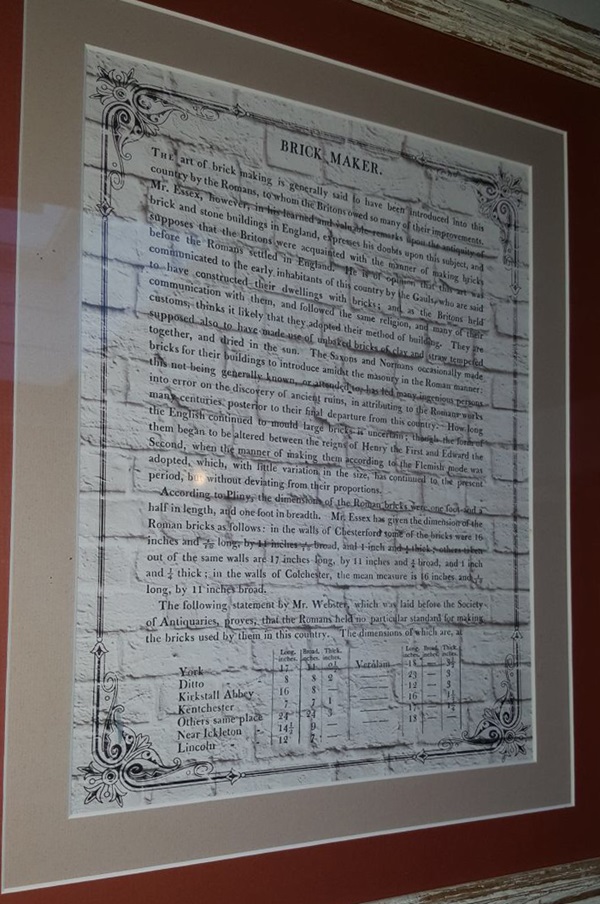 BRICK MAKER.
THE art of brick making is generally said to have been introduced into this
country by the Romans, to whom the Britons owed so many of their improvements.
Mr. Essex, however, in his learned and valuable remarks upon the antiquity of
brick and stone buildings in England, expresses his doubts upon this subject, and
supposes that the Britons were acquainted with the manner of making bricks
before the Romans settled in England. He is of opinion that this art was
communicated to the early inhabitants of this country by the Gauls, who are said
to have constructed their dwellings with bricks; and, as the Britons held
communication with them, and followed the same religion, and many of their
customs, thinks it likely that they adopted their method of building. They are
supposed also to have made use of unbaked bricks of clay and straw tempered
together, and dried in the sun. The Saxons and Normans occasionally made
bricks for their buildings to introduce amidst the masonry in the Roman manner;
this not being generally known, or attended to, has led many ingenious persons
into error on the discovery of ancient ruins, in attributing to the Romans works
many centuries posterior to their final departure from this country. How long
the English continued to mould large bricks is uncertain; though the form of
them began to be altered between the reigns of Henry the First and Edward the
Second, when the manner of making them according to the Flemish mode was
adopted, which, with little variation in the size, has continued to the present
period, but without deviating from their proportions.
According to Pliny, the dimensions of the Roman bricks were one foot and a
half in length, and one foot in breadth. Mr. Essex has given the dimension of the
Roman bricks as follows: in the walls of Chesterford some of the bricks were 16
inches and long, by 11 inches broad, and 1 inch and thick; others taken
out of the same walls are 17 inches long, by 11 inches and broad, and 1 inch
and thick; in the walls of Colchester, the mean measure is 16 inches and
long, by 11 inches broad.
The following statement by Mr. Webster, which was laid before the Society
of Antiquaries, proves, that the Romans held no particular standard for making
the bricks used by them in this country. The dimensions of which are, at
Long. inches. Broad. inches. Thick. inches. Long. inches. Broad. inches. Thick. inches.
York 17 11 Verulam
Ditto 8 8 2 23 — 3
Kirkstall Abbey 16 8 — 12 — 3
Kentchester 7 7 1 16 —
Others same place 24 24 3 17 —
Near Ickleton 14½ 9 — 18 —
Lincoln 12 7 —